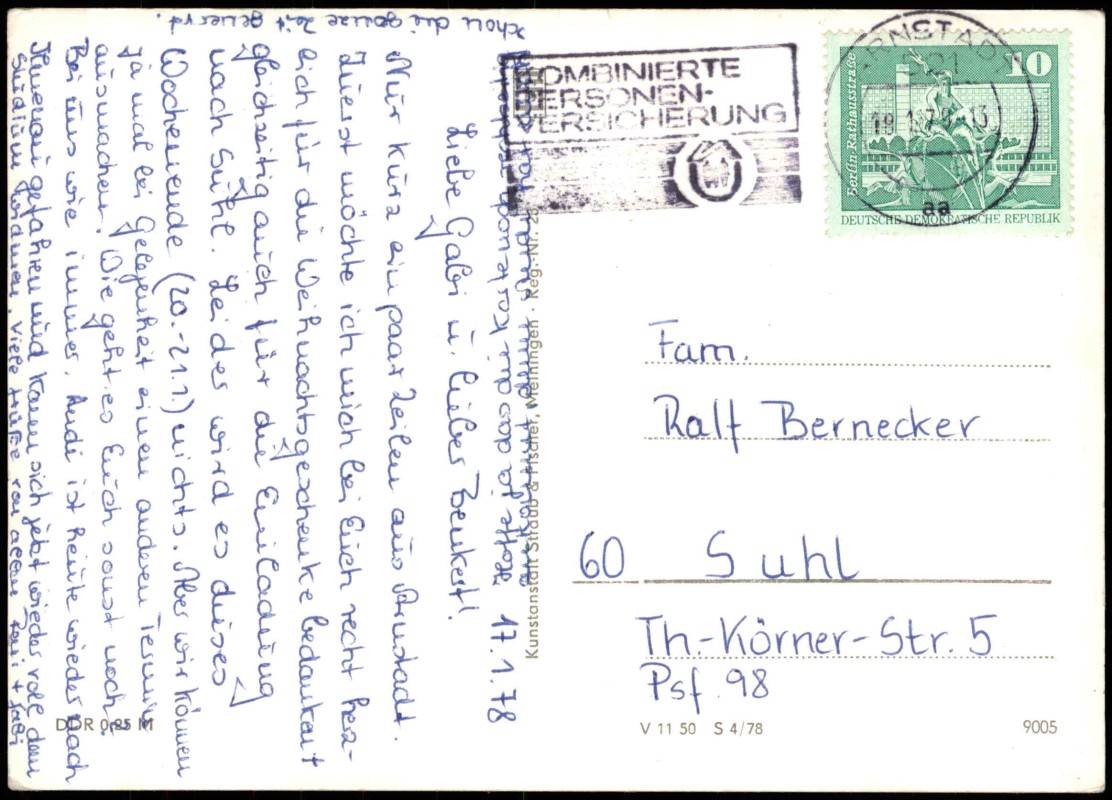 KOMBINIERTE
PERSONEN-
VERSICHERUNG
ARNSTADT 1
aa
10
Berlin Rathausstraße
DEUTSCHE DEMOKRATISCHE REPUBLIK
17.1.78
Liebe Gabi u. lieber Benkert!
Nur kurz ein paar Zeilen aus Arnstadt.
Zuerst möchte ich mich bei Euch recht herz-
lich für die Weihnachtsgeschenke bedanken
gleichzeitig auch für die Einladung
nach Suhl. Leider wird es dieses
Wochenende (20.-21.1.) nichts. Aber wir können
ja mal bei Gelegenheit einen anderen Termin
ausmachen. Wie geht es Euch sonst noch?
Bei uns wie immer. Andi ist heute wieder nach
Ilmenau gefahren und kann sich jetzt wieder voll dem
Studium widmen. Viele Grüße von allen
schon die ganze Zeit
Kunstanstalt Straub & Fischer, Meiningen · Reg.-Nr.
Fam.
Ralf Bernecker
60 Suhl
Th.-Körner-Str. 5
Psf. 98
DDR 0,25 M
V 11 50 S 4/78
9005